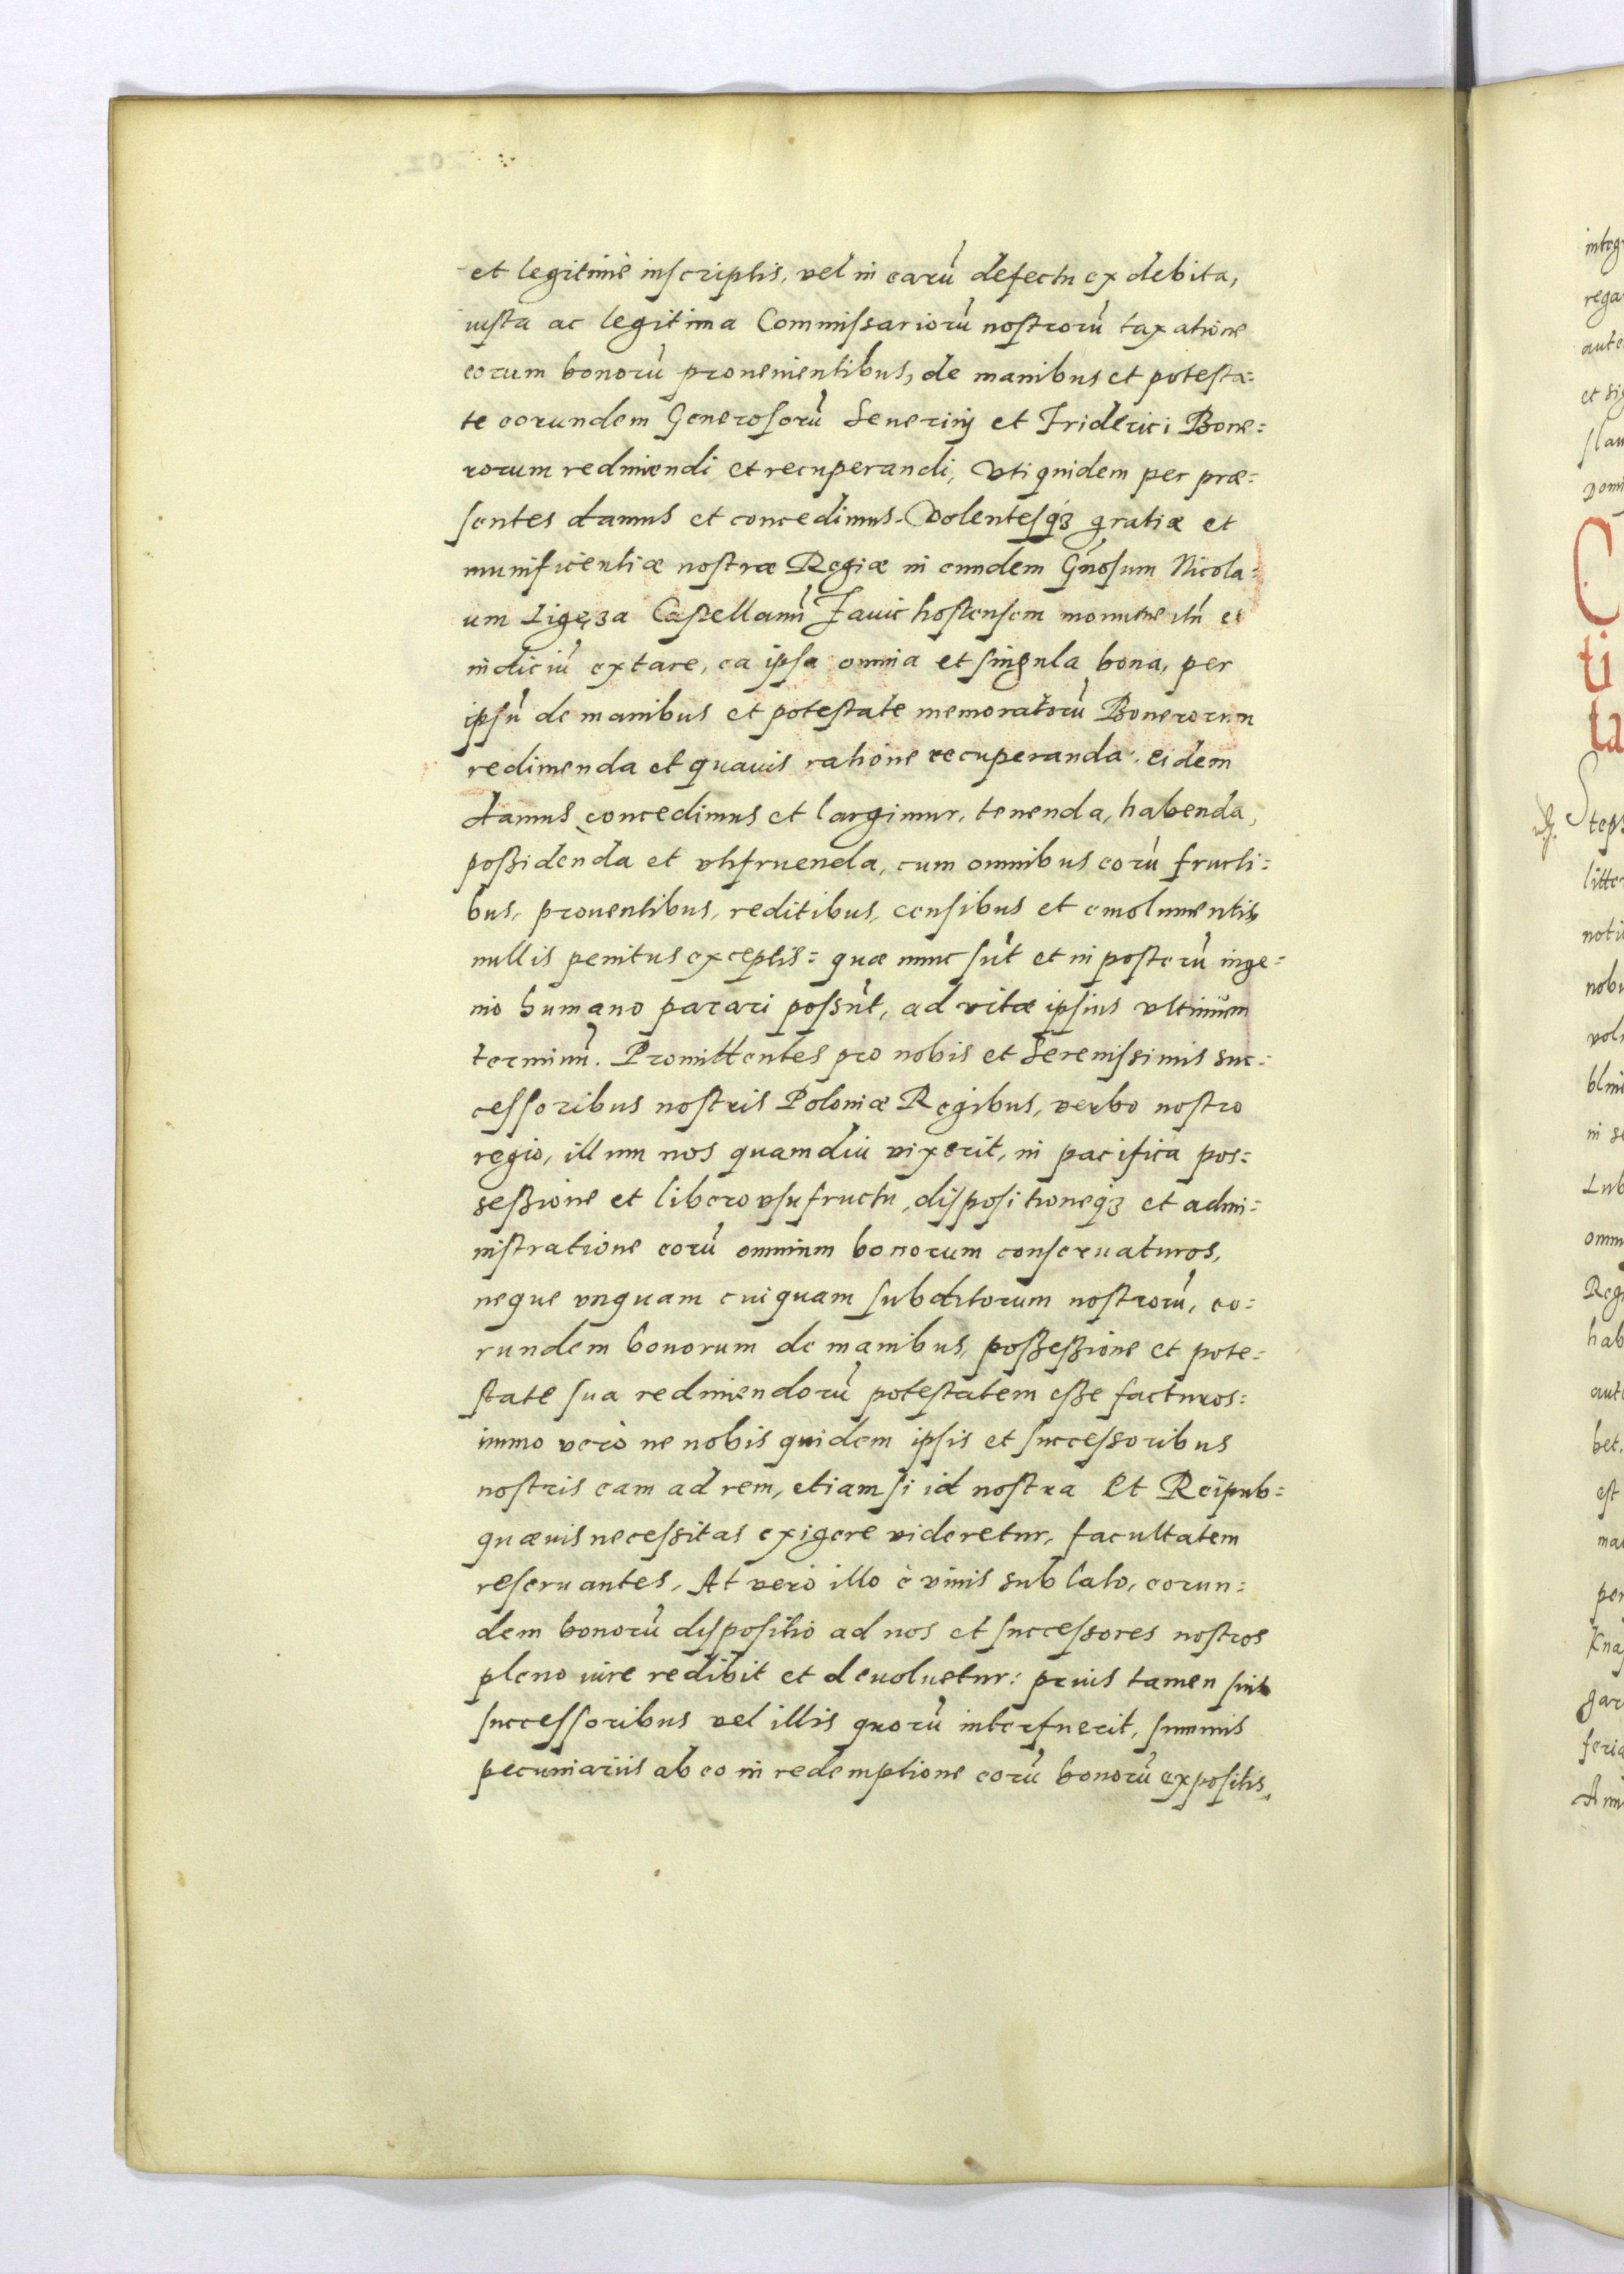 et legitimè inscriptis, vel in earũ defectu ex debita,
iusta ac legitima Commissariorũ nostrorũ taxatione
eorum bonorũ prouenientibus, de manibus et potesta=
te eorundem Generosorũ Seuerinj et Friderici Bone=
rorum redimendi et recuperandi, Vti quidem per præ=
sentes damus et concedimus. Volentesq₃ gratiæ et
munificentiæ nostræ Regiæ in eundem Gñosum Nicola=
um Ligęza Castellanũ Zauichostensem monumentũ et
indiciũ extare, ea ipsa omnia et singula bona, per
ipsũ de manibus et potestate memoratorũ Bonerorum
redimenda et quauis ratione recuperanda, eidem
damus concedimus et largimur, tenenda, habenda,
possidenda et vtifruenda, cum omnibus eorũ fructi=
bus, prouentibus, reditibus, censibus et emolumentis
nullis penitus exceptis: quæ nunc sũt et in posterũ inge=
nio humano parari possũt, ad vitæ ipsius vltimum
terminũ. Promittentes pro nobis et Serenissimis suc=
cessoribus nostris Poloniæ Regibus, verbo nostro
regio, illum nos quamdiu vixerit, in pacifica pos=
sessione et libero vsufructu, dispositioneq₃ et admi=
nistratione eorũ omnium bonorum conseruaturos,
neque vnquam cuiquam subditorum nostrorũ, eo=
rundem bonorum de manibus, possessione et pote=
state sua redimendorũ potestatem esse facturos:
immo verò ne nobis quidem ipsis et successoribus
nostris eam ad rem, etiam si id nostra et Reipub=
quæuis necessitas exigere videretur, facultatem
reseruantes. At verò illo è viuis sublato, eorun=
dem bonorũ dispositio ad nos et successores nostros
pleno iure redibit et deuoluetur: prius tamen suis
successoribus vel illis quorũ interfuerit, summis
pecuniariis ab eo in redemptione eorũ bonorũ expositis,
integ
rega
aut
et si
slau
Domi
C
ti
ta
Step
litte
noti
nobi
volu
blini
in se
Lub
omn
Reg
hab
aut
bet.
est
ma
per
Kna
gar
feria